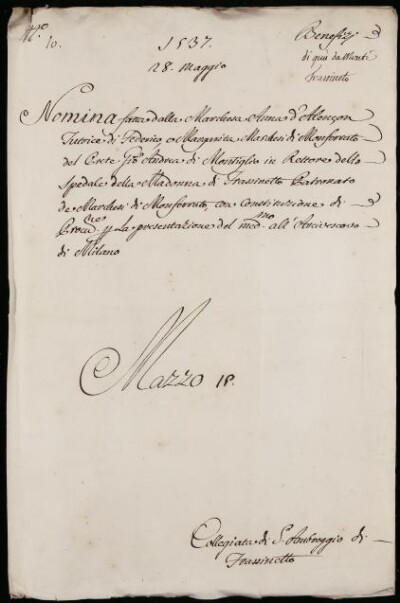 N.º
10.
1537.
28. Maggio
Benefizj
di qua da Monti
Frassineto
Nomina fatta dalla Marchesa Anna d'Alençon
Tutrice di Federico, e Margarita Marchesi di Monferrato
del Prete Gio Andrea di Montiglio in Rettore dello
Spedale della Madonna di Frassinetto Patronato
de Marchesi di Monferrato, con Constituzione di
Procu.re p la presentazione del med.mo all'Arcivescovo
di Milano
Mazzo 18.
Collegiata di S. Ambroggio di
Frassinetto